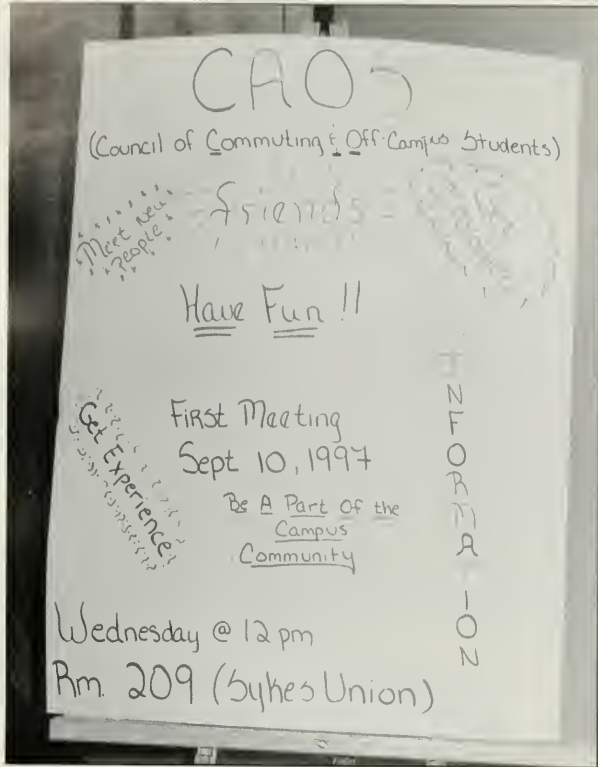 CAOS
(Council of Commuting & Off-Campus Students)
Meet New
People
friends
Have Fun !!
Get Experience
First Meeting
Sept 10, 1997
Be A Part Of the
Campus
Community
INFORMA ION
Wednesday @ 12 pm
Rm. 209 (Sykes Union)